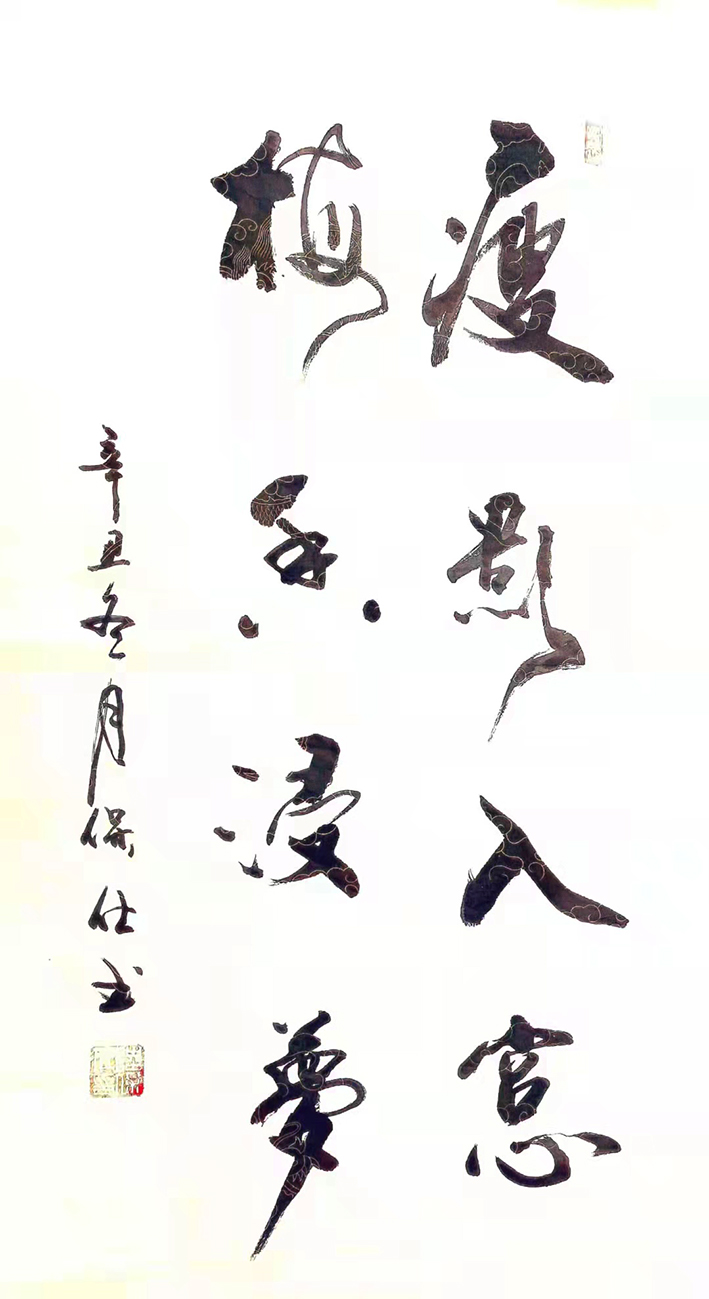 瘦影入窓
梅香浸夢
辛丑冬月保仕书